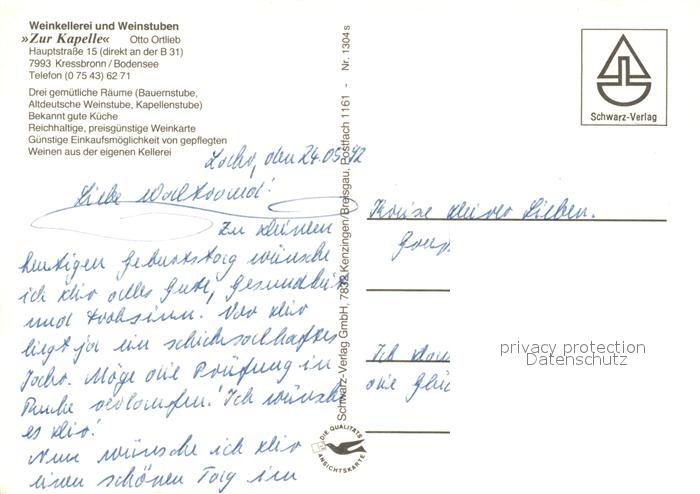 Weinkellerei und Weinstuben
»Zur Kapelle« Otto Ortlieb
Hauptstraße 15 (direkt an der B 31)
7993 Kressbronn / Bodensee
Telefon (0 75 43) 62 71
Drei gemütliche Räume (Bauernstube,
Altdeutsche Weinstube, Kapellenstube)
Bekannt gute Küche
Reichhaltige, preisgünstige Weinkarte
Günstige Einkaufsmöglichkeit von gepflegten
Weinen aus der eigenen Kellerei
den 24.05.92
Liebe Waltraud!
Zu deinem
heutigen Geburtstag wünsche
ich dir alles Gute, Gesundheit
und Frohsinn. Vor dir
liegt ja ein schicksalhaftes
Jahr. Möge die Prüfung in
Ruhe verlaufen! Ich wünsche
es dir!
Nun wünsche ich dir
einen schönen Tag im
Kreise deiner Lieben.
Ich
die
Schwarz-Verlag GmbH, 7832 Kenzingen/Breisgau, Postfach 1161 - Nr. 1304 s
DIE QUALITÄTS
ANSICHTSKARTE
Schwarz-Verlag
privacy protection
Datenschutz